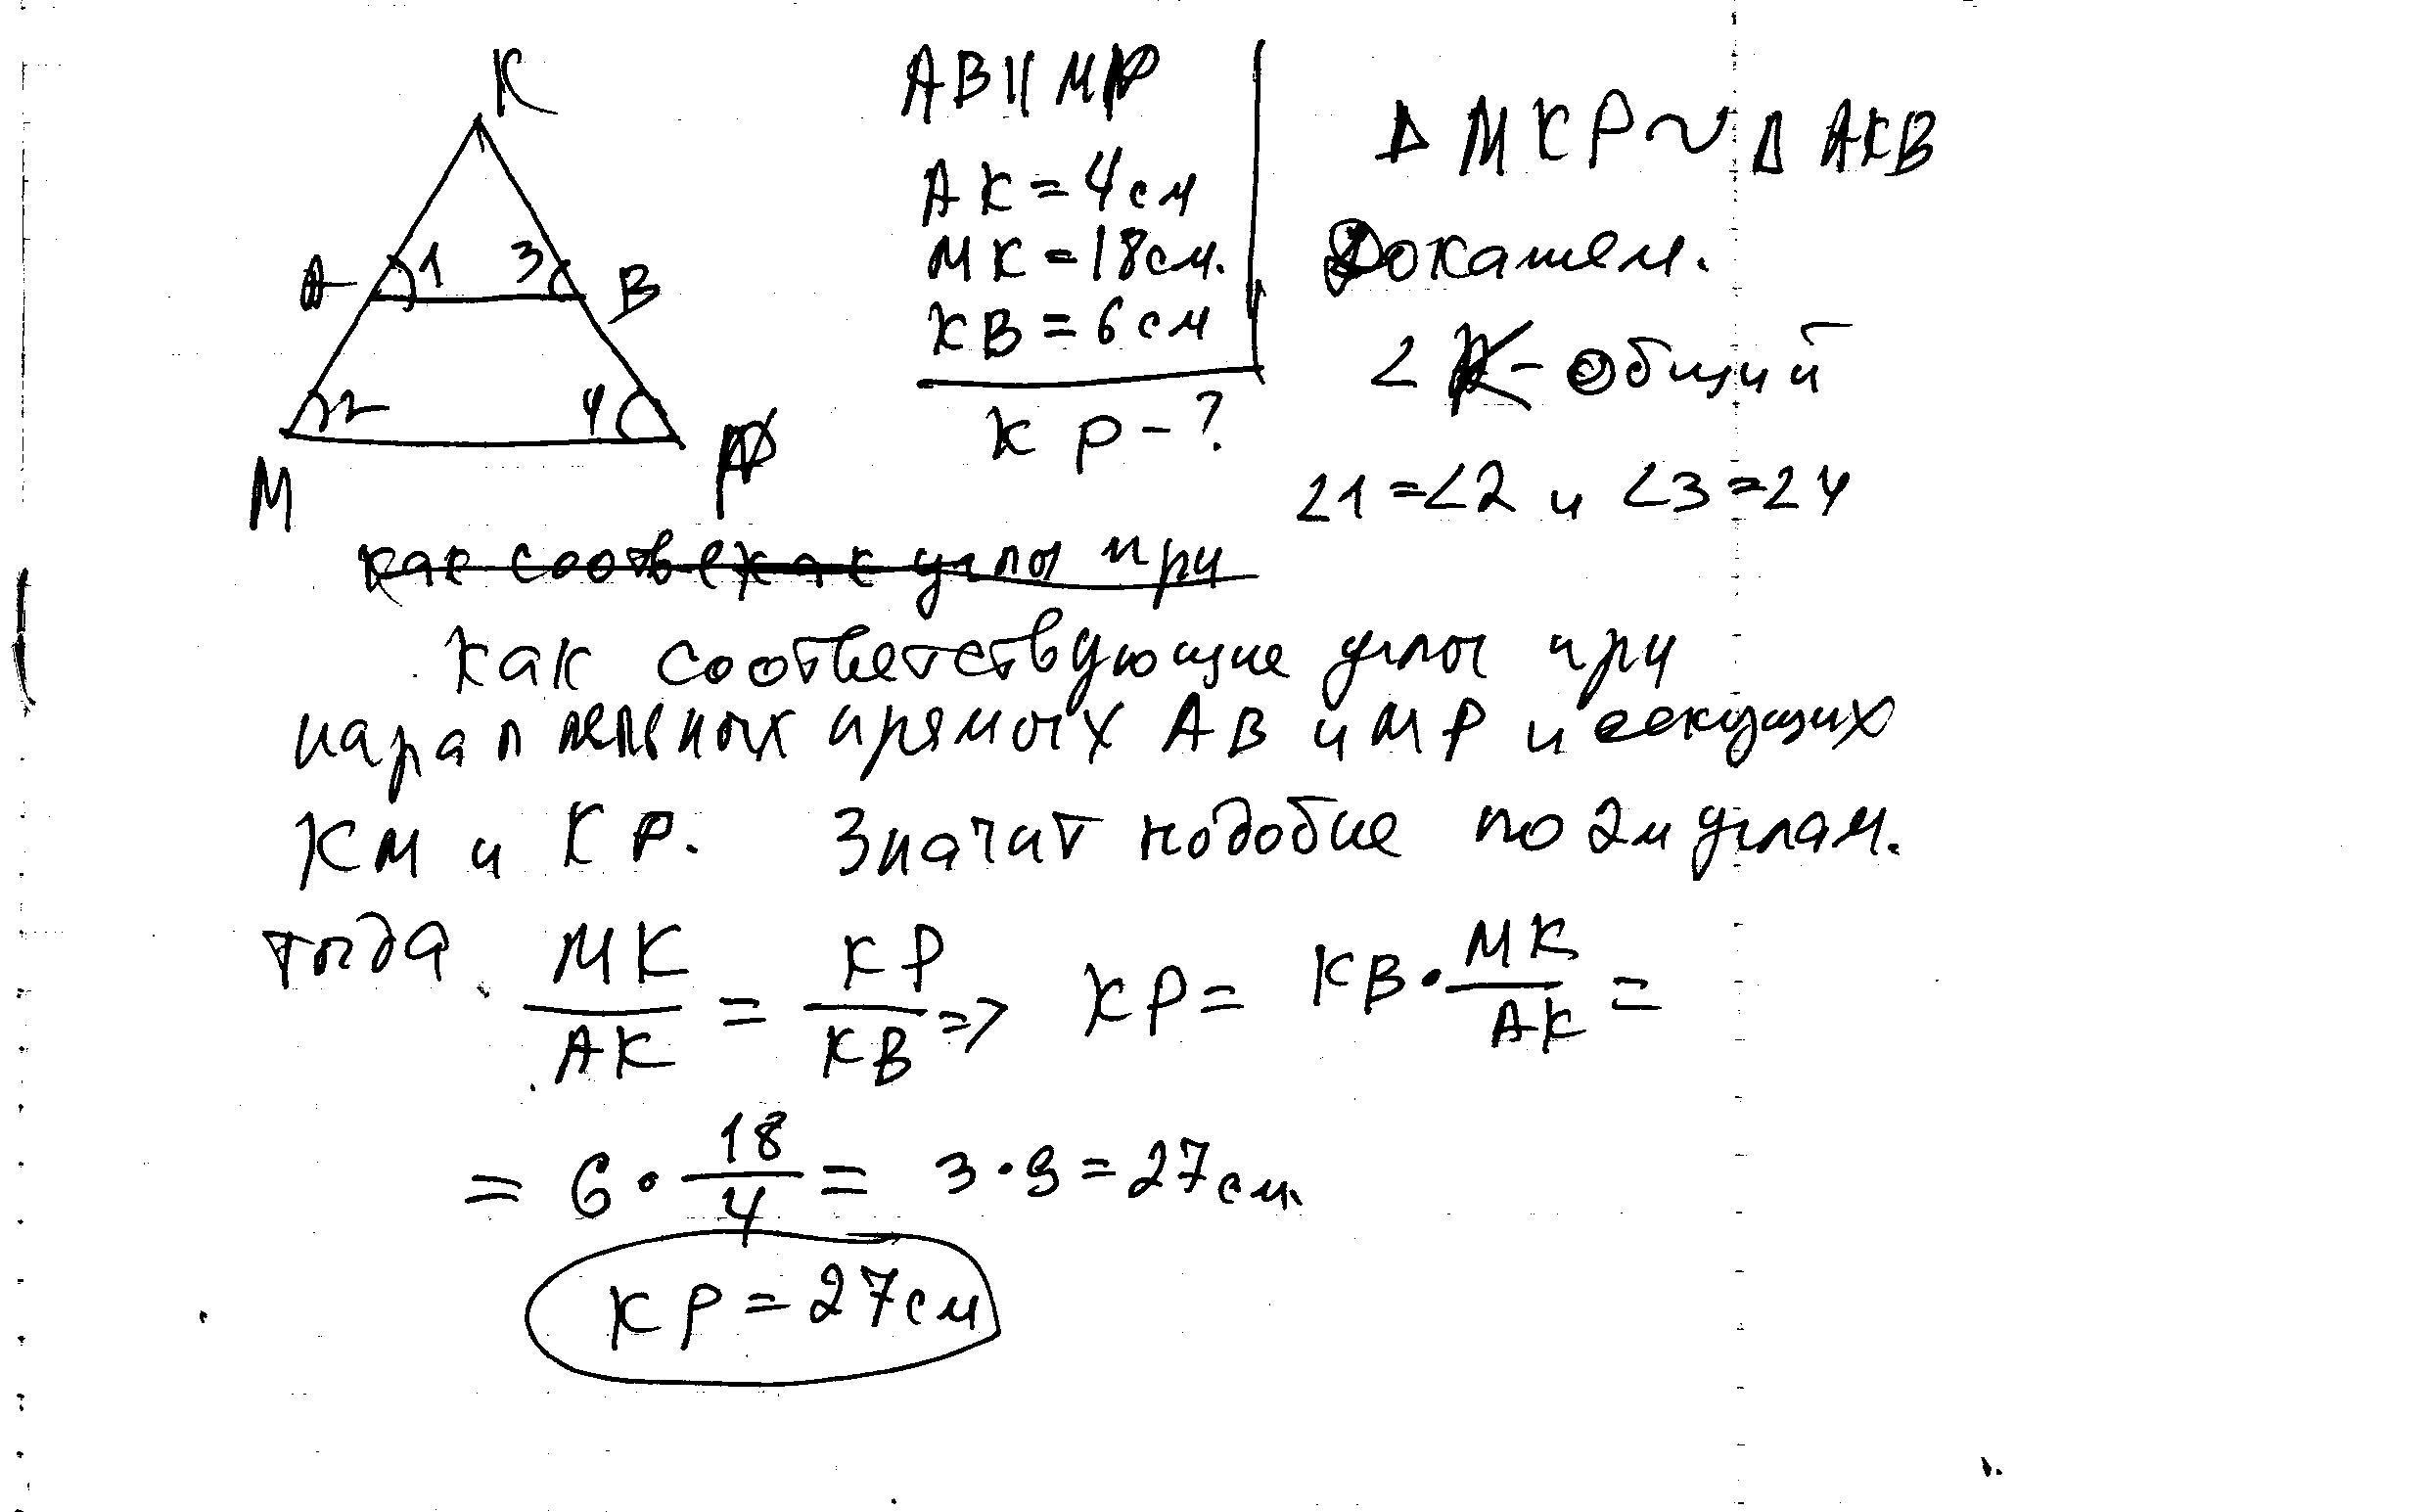 K
A 1 3 B
M 2 4 P
AB || MP
AK = 4 см
MK = 18 см.
KB = 6 см
KP - ?
Δ MKP ~ Δ AKB
Докажем.
∠K - общий
∠1 = ∠2 и ∠3 = ∠4
как соотве как углы при
как соответствующие углы при
паралельных прямых AB и MP и секущих
KM и KP. Значит подобие по 2м углам.
тогда MK/AK = KP/KB => KP = KB · MK/AK =
= 6 · 18/4 = 3 · 9 = 27 см.
KP = 27 см